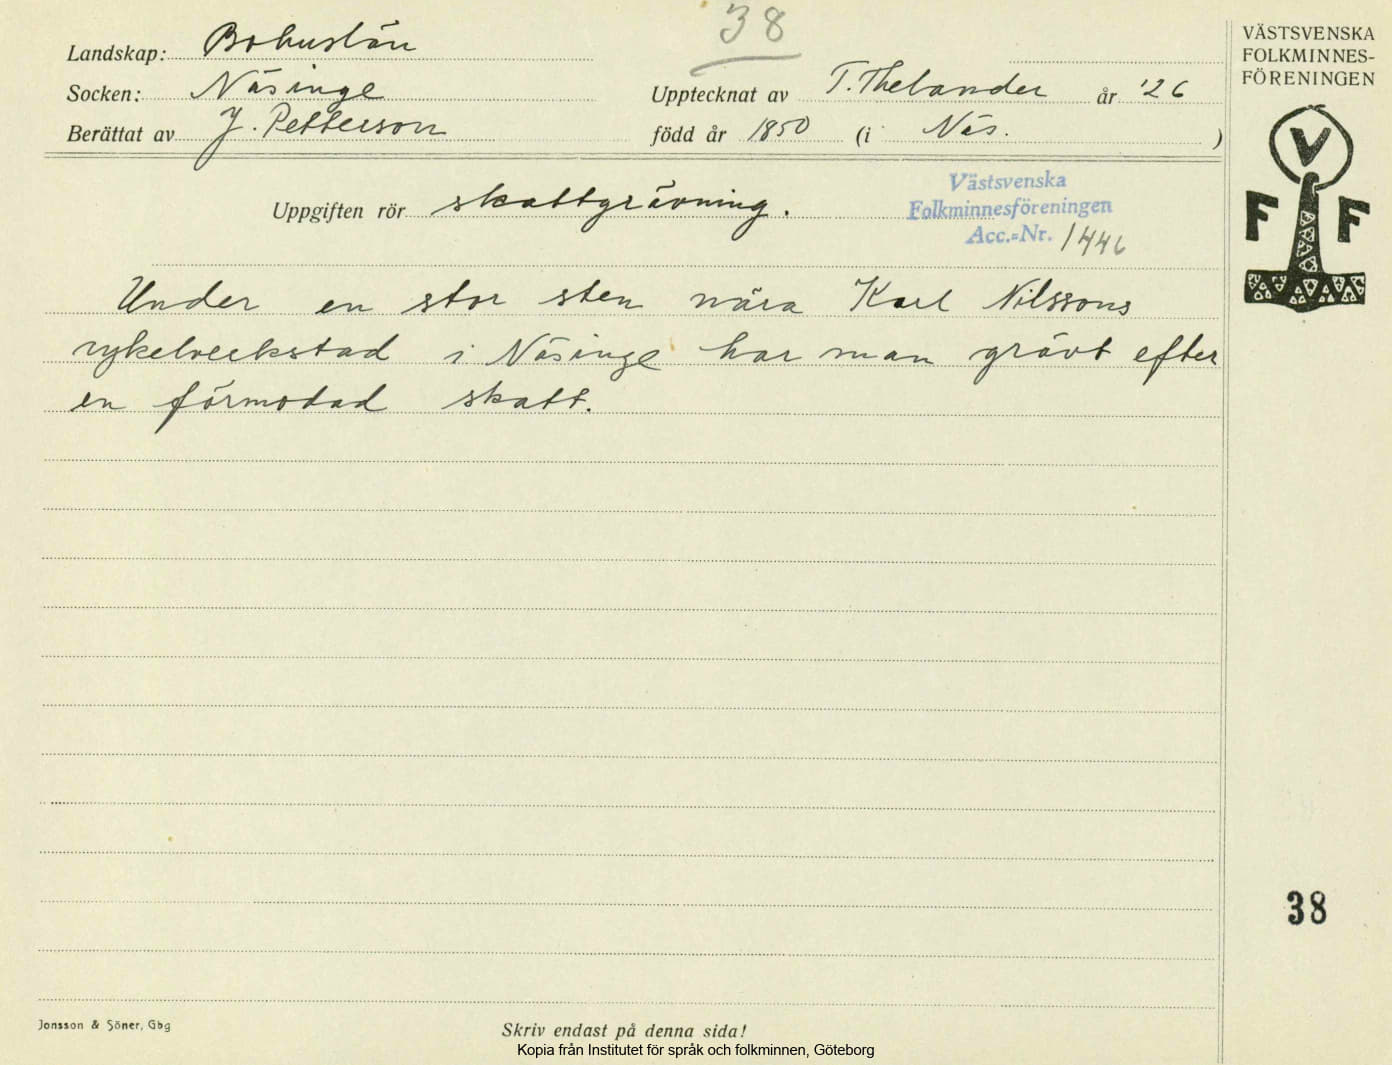 38
Landskap: Bohuslän
Socken: Näsinge
Upptecknat av T. Thelander år '26
Berättat av J. Petterson
född år 1850 (i Näs. )
VÄSTSVENSKA
FOLKMINNES-
FÖRENINGEN
V
F F
Uppgiften rör skattgrävning.
Västsvenska
Folkminnesföreningen
Acc.=Nr. 1446
Under en stor sten nära Karl Nilssons
cykelverkstad i Näsinge har man grävt efter
en förmodad skatt.
38
Jonsson & Söner, Gbg
Skriv endast på denna sida!
Kopia från Institutet för språk och folkminnen, Göteborg